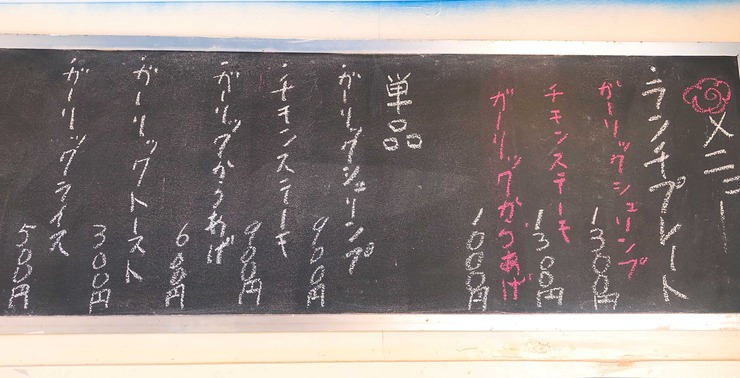 メニュー
・ランチプレート
ガーリックシュリンプ 1300円
チキンステーキ 1300円
ガーリックからあげ 1000円
単品
・ガーリックシュリンプ 900円
・チキンステーキ 900円
・ガーリックからあげ 600円
・ガーリックトースト 300円
・ガーリックライス 500円